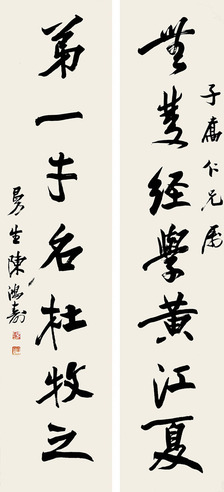 子仁兄屬
無雙經學黃江夏
第一才名杜牧之
曼生陳鴻壽